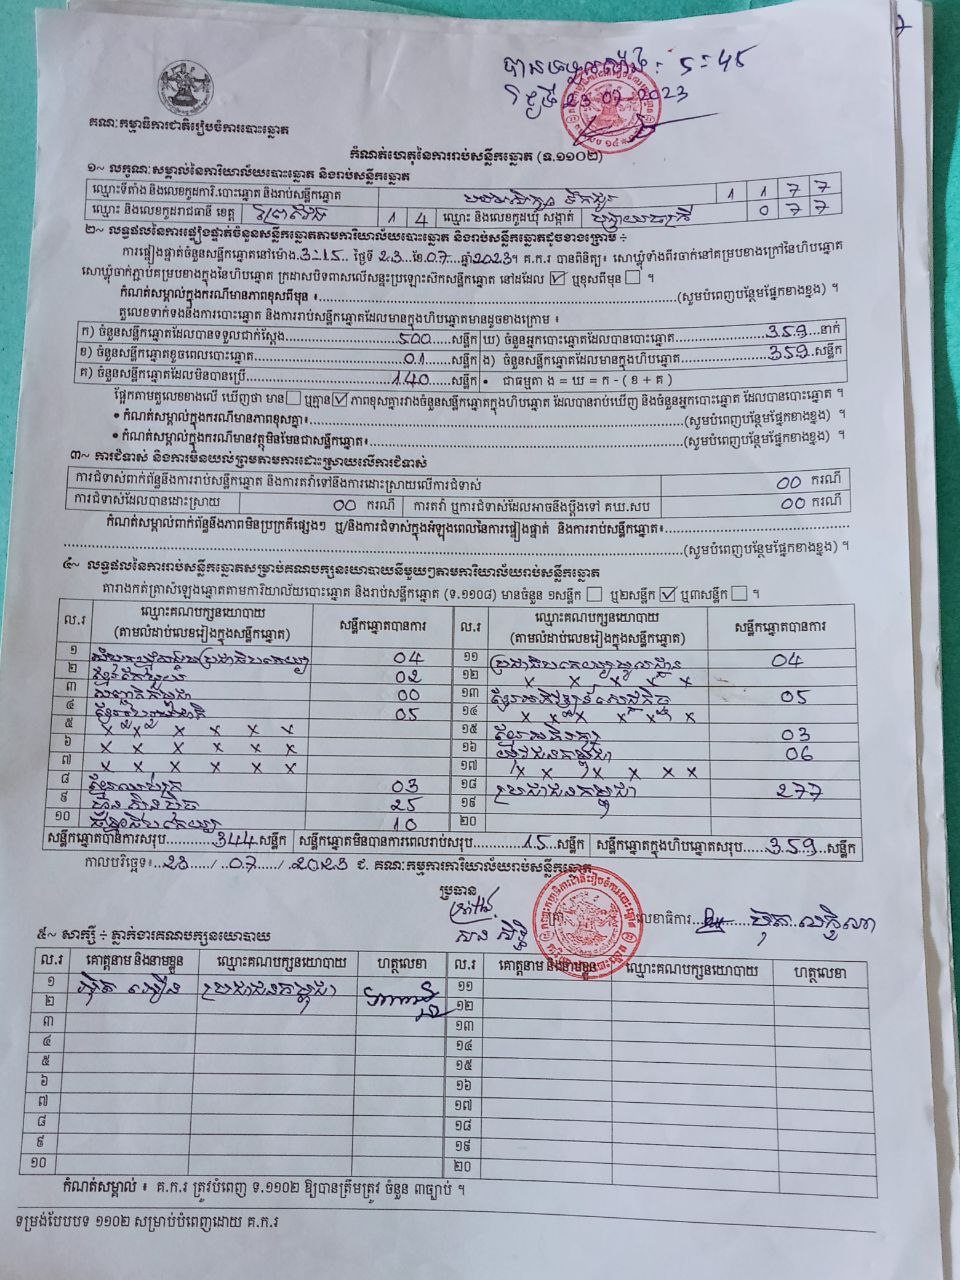 បានទទួលម៉ោង: 5:45
ថ្ងៃទី 23 07 2023
គណៈកម្មាធិការជាតិរៀបចំការបោះឆ្នោត
កំណត់ហេតុនៃការរាប់សន្លឹកឆ្នោត (ទ.១១០២)
១~ លក្ខណៈសម្គាល់នៃការិយាល័យបោះឆ្នោត និងរាប់សន្លឹកឆ្នោត
ឈ្មោះទីតាំង និងលេខកូដការិ.បោះឆ្នោត និងរាប់សន្លឹកឆ្នោត 1 1 7 7
ឈ្មោះ និងលេខកូដរាជធានី ខេត្ត ព្រៃវែង 1 4 ឈ្មោះ និងលេខកូដឃុំ សង្កាត់ 0 7 7
២~ លទ្ធផលនៃការផ្ទៀងផ្ទាត់ចំនួនសន្លឹកឆ្នោតតាមការិយាល័យបោះឆ្នោត និងរាប់សន្លឹកឆ្នោតដូចខាងក្រោម ÷
ការផ្ទៀងផ្ទាត់ចំនួនសន្លឹកឆ្នោតនៅម៉ោង.3-15.. ថ្ងៃទី 23.នែ.07..ឆ្នាំ2023។ គ.ក.រ បានពិនិត្យ៖ សោឃ្លុំទាំងពីរចាក់នៅគម្របខាងក្រៅនៃហិបឆ្នោត
សោឃ្លុំចាក់ភ្ជាប់គម្របខាងក្នុងនៃហិបឆ្នោត ក្រដាសបិទពាសលើសន្ទះប្រឡោះស៊កសន្លឹកឆ្នោត នៅដដែល ☑ ឬខុសពីមុន ☐ ។
កំណត់សម្គាល់ក្នុងករណីមានភាពខុសពីមុន ៖.....(សូមបំពេញបន្ថែមផ្នែកខាងខ្នង) ។
តួលេខទាក់ទងនឹងការបោះឆ្នោត និងការរាប់សន្លឹកឆ្នោតដែលមានក្នុងហិបឆ្នោតមានដូចខាងក្រោម ៖
ក) ចំនួនសន្លឹកឆ្នោតដែលបានទទួលជាក់ស្តែង.....500.....សន្លឹក ឃ) ចំនួនអ្នកបោះឆ្នោតដែលបានបោះឆ្នោត.....359...នាក់
ខ) ចំនួនសន្លឹកឆ្នោតខូចពេលបោះឆ្នោត.....01.....សន្លឹក ង) ចំនួនសន្លឹកឆ្នោតដែលមានក្នុងហិបឆ្នោត.....359..សន្លឹក
គ) ចំនួនសន្លឹកឆ្នោតដែលមិនបានប្រើ.....140.....សន្លឹក • ជាធម្មតា ង = ឃ = ក - ( ខ + គ )
ផ្អែកតាមតួលេខខាងលើ ឃើញថា មាន ☐ ឬគ្មាន ☑ ភាពខុសគ្នារវាងចំនួនសន្លឹកឆ្នោតក្នុងហិបឆ្នោត ដែលបានរាប់ឃើញ និងចំនួនអ្នកបោះឆ្នោត ដែលបានបោះឆ្នោត ។
• កំណត់សម្គាល់ក្នុងករណីមានភាពខុសគ្នា៖.....(សូមបំពេញបន្ថែមផ្នែកខាងខ្នង) ។
• កំណត់សម្គាល់ក្នុងករណីមានវត្ថុមិនមែនជាសន្លឹកឆ្នោត៖.....(សូមបំពេញបន្ថែមផ្នែកខាងខ្នង) ។
៣~ ការជំទាស់ និងការមិនយល់ព្រមតាមការដោះស្រាយលើការជំទាស់
ការជំទាស់ពាក់ព័ន្ធនឹងការរាប់សន្លឹកឆ្នោត និងការតវ៉ាទៅនឹងការដោះស្រាយលើការជំទាស់ 00 ករណី
ការជំទាស់ដែលបានដោះស្រាយ 00 ករណី ការតវ៉ា ឬការជំទាស់ដែលអាចនឹងប្តឹងទៅ គឃ.សប 00 ករណី
កំណត់សម្គាល់ពាក់ព័ន្ធនឹងភាពមិនប្រក្រតីផ្សេងៗ ឬ/និងការជំទាស់ក្នុងអំឡុងពេលនៃការផ្ទៀងផ្ទាត់ និងការរាប់សន្លឹកឆ្នោត៖.....
.....(សូមបំពេញបន្ថែមផ្នែកខាងខ្នង) ។
៤~ លទ្ធផលនៃការរាប់សន្លឹកឆ្នោតសម្រាប់គណបក្សនយោបាយនីមួយៗតាមការិយាល័យរាប់សន្លឹកឆ្នោត
តារាងកត់ត្រាសំឡេងឆ្នោតតាមការិយាល័យបោះឆ្នោត និងរាប់សន្លឹកឆ្នោត (ទ.១១០៨) មានចំនួន ១សន្លឹក ☐ ឬ២សន្លឹក ☑ ឬ៣សន្លឹក ☐ ។
ល.រ ឈ្មោះគណបក្សនយោបាយ (តាមលំដាប់លេខរៀងក្នុងសន្លឹកឆ្នោត) សន្លឹកឆ្នោតបានការ ល.រ ឈ្មោះគណបក្សនយោបាយ (តាមលំដាប់លេខរៀងក្នុងសន្លឹកឆ្នោត) សន្លឹកឆ្នោតបានការ
១ សំបុកឃ្មុំសង្គមប្រជាធិបតេយ្យ 04 ១១ ប្រជាធិបតេយ្យមូលដ្ឋាន 04
២ ខ្មែរឯកភាព 02 ១២ x x x x x
៣ សញ្ជាតិកម្ពុជា 00 ១៣ ខ្មែរអភិវឌ្ឍន៍សេដ្ឋកិច្ច 05
៤ ខ្មែររួបរួមជាតិ 05 ១៤ x x x x x
៥ x x x x x x ១៥ 03
៦ x x x x x ១៦ យុវជនកម្ពុជា 06
៧ x x x x x x ១៧ x x x x x x
៨ ខ្មែរឈប់ក្រ 03 ១៨ ប្រជាជនកម្ពុជា 277
៩ ហ៊្វុនស៊ិនប៉ិច 25 ១៩
១០ 10 ២០
សន្លឹកឆ្នោតបានការសរុប.....344..សន្លឹក សន្លឹកឆ្នោតមិនបានការពេលរាប់សរុប.....15..សន្លឹក សន្លឹកឆ្នោតក្នុងហិបឆ្នោតសរុប.....359...សន្លឹក
កាលបរិច្ឆេទ៖..23...../..07...../..2023 ជ. គណៈកម្មការការិយាល័យរាប់សន្លឹកឆ្នោត
ប្រធាន
លេខាធិការ
៥~ សាក្សី ÷ ភ្នាក់ងារគណបក្សនយោបាយ
ល.រ គោត្តនាម និងនាមខ្លួន ឈ្មោះគណបក្សនយោបាយ ហត្ថលេខា ល.រ គោត្តនាម និងនាមខ្លួន ឈ្មោះគណបក្សនយោបាយ ហត្ថលេខា
១ ប្រជាជនកម្ពុជា ១១
២ ១២
៣ ១៣
៤ ១៤
៥ ១៥
៦ ១៦
៧ ១៧
៨ ១៨
៩ ១៩
១០ ២០
កំណត់សម្គាល់ ៖ គ.ក.រ ត្រូវបំពេញ ទ.១១០២ ឱ្យបានត្រឹមត្រូវ ចំនួន ៣ច្បាប់ ។
ទម្រង់បែបបទ ១១០២ សម្រាប់បំពេញដោយ គ.ក.រ